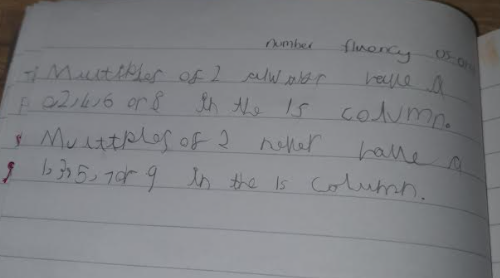 number fluency
Multiples of 2 always have a
0,2,4,6 or 8 in the 1s column.
Multiples of 2 never have a
1,3,5,7 or 9 in the 1s column.